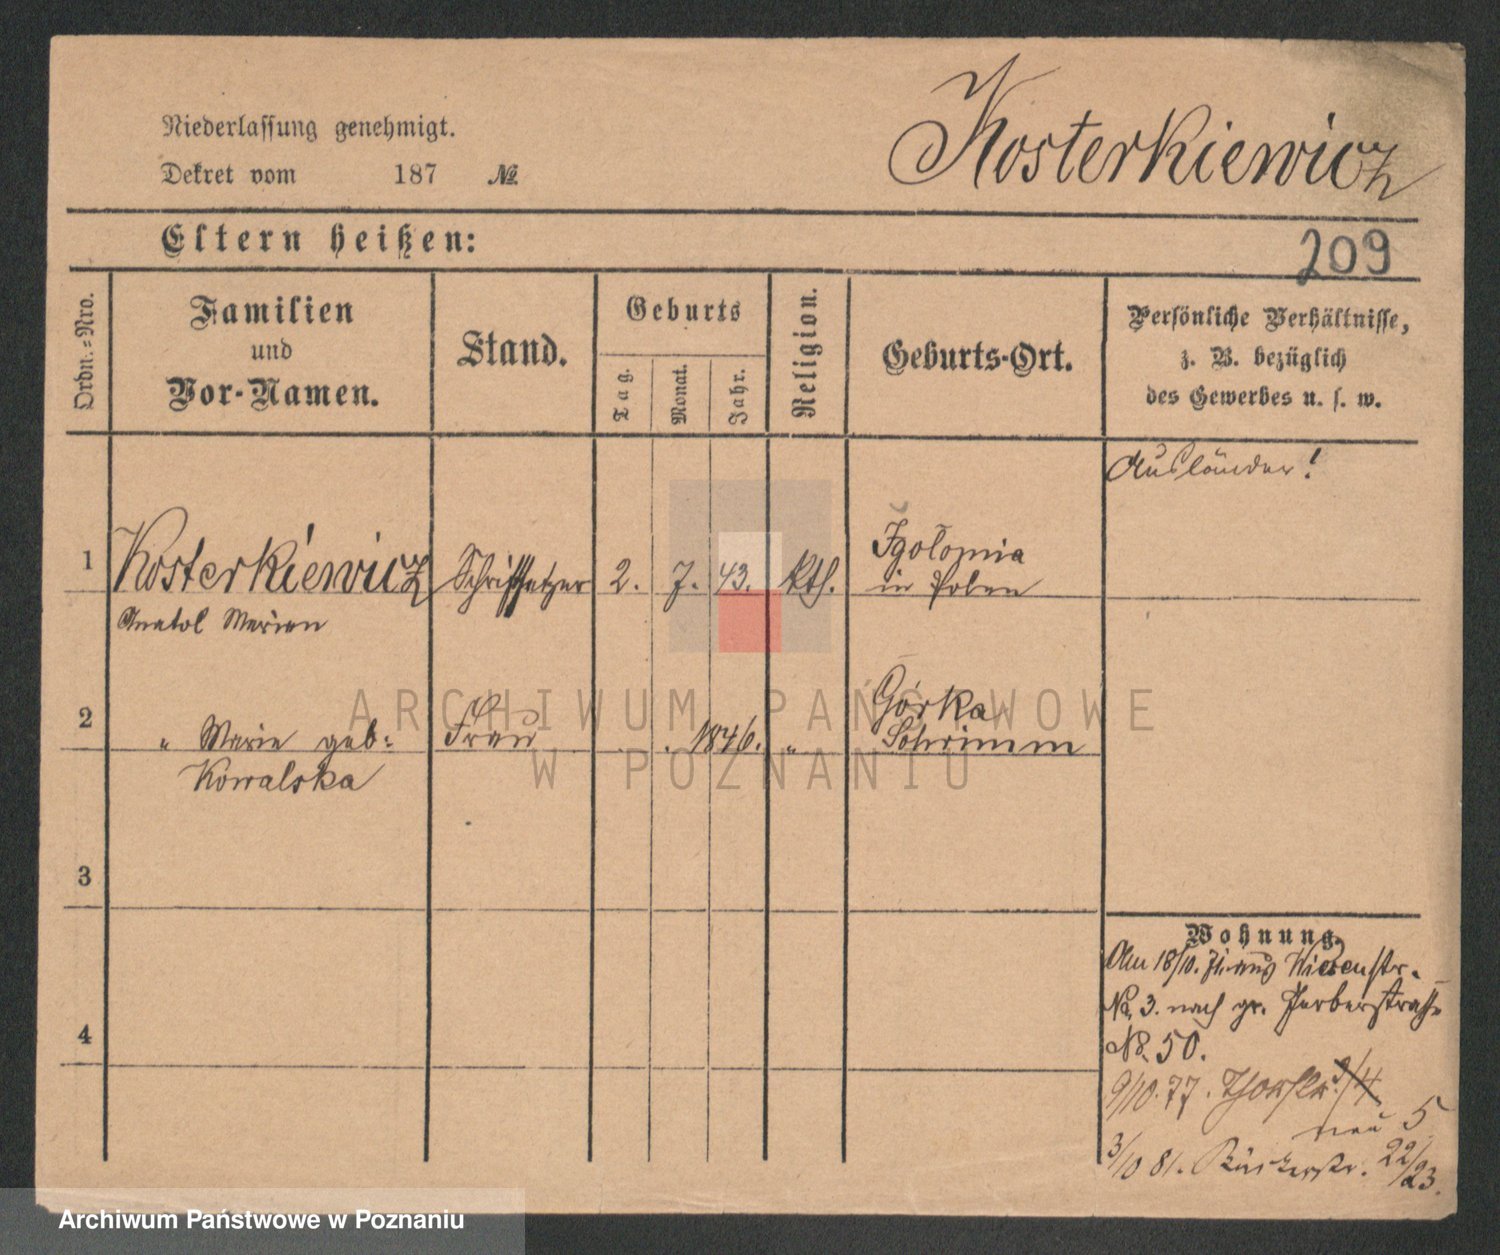 Kosterkiewicz
Niederlassung genehmigt.
Dekret vom 187 №
Eltern heißen:
209
Ordn.=Nro.
Familien
und
Vor-Namen.
Stand.
Geburts
Tag.
Monat.
Jahr.
Religion.
Geburts-Ort.
Persönliche Verhältnisse,
z. B. bezüglich
des Gewerbes u. s. w.
Ausländer!
1 Kosterkiewicz Schriftsetzer 2. 7. 43. kth. Igołomia
in Polen
Anatol Marian
2 " Marie geb: Frau 1846. " Górka
Schrimm
Kowalska
3
4
Wohnung.
Am 18/10. 71. aus Wiesenstr.
No. 3. nach gr. Gerberstraße
No. 50.
9/10. 77. Thorstr. 3/4
neu 5
3/10 81. Bäckerstr. 22/23.
ARCHIWUM PAŃSTWOWE
W POZNANIU
Archiwum Państwowe w Poznaniu